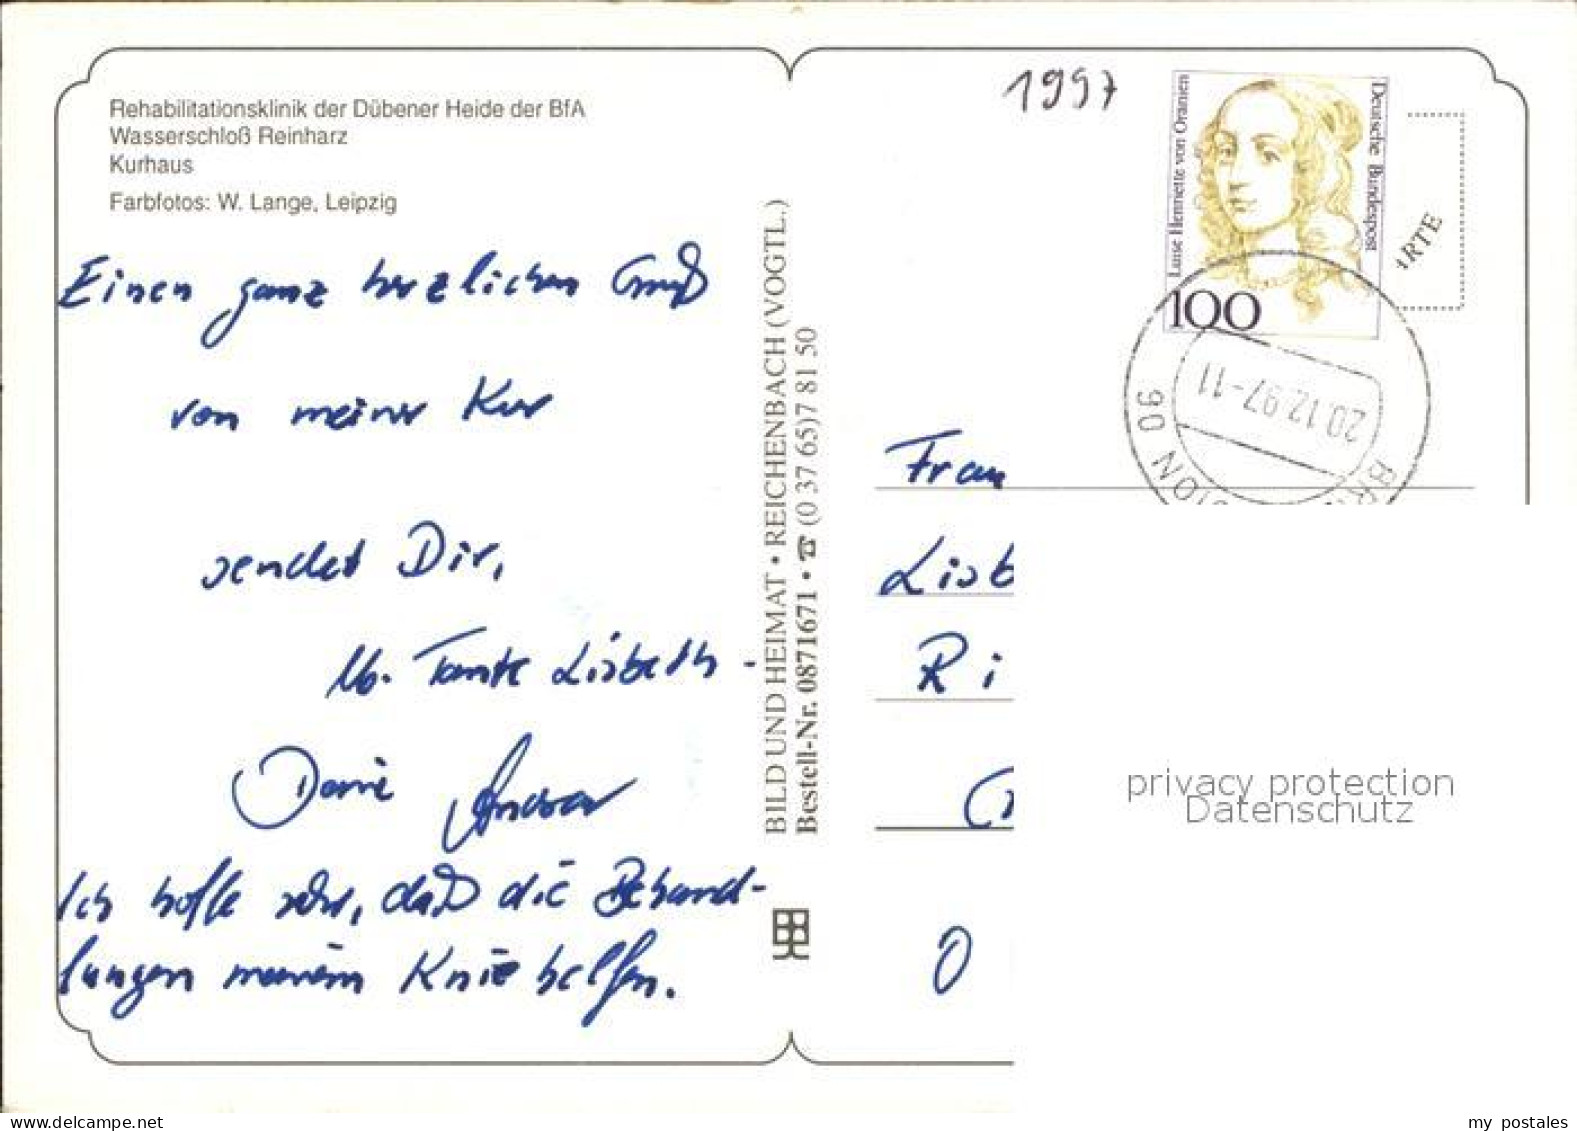 Rehabilitationsklinik der Dübener Heide der BfA
Wasserschloß Reinharz
Kurhaus
Farbfotos: W. Lange, Leipzig
Einen ganz herzlichen Gruß
von meiner Kur
sendet Dir,
lb. Tante Lisbeth -
Deine
Ich hoffe sehr, daß die Behand-
lungen meinem Knie helfen.
BILD UND HEIMAT • REICHENBACH (VOGTL.)
Bestell-Nr. 0871671 • ☎ (0 37 65) 7 81 50
1997
Luise Henriette von Oranien
Deutsche Bundespost
100
ARTE
20.12.97-11
90
Frau
Lisb
Ri
O
privacy protection
Datenschutz
www.delcampe.net
my postales